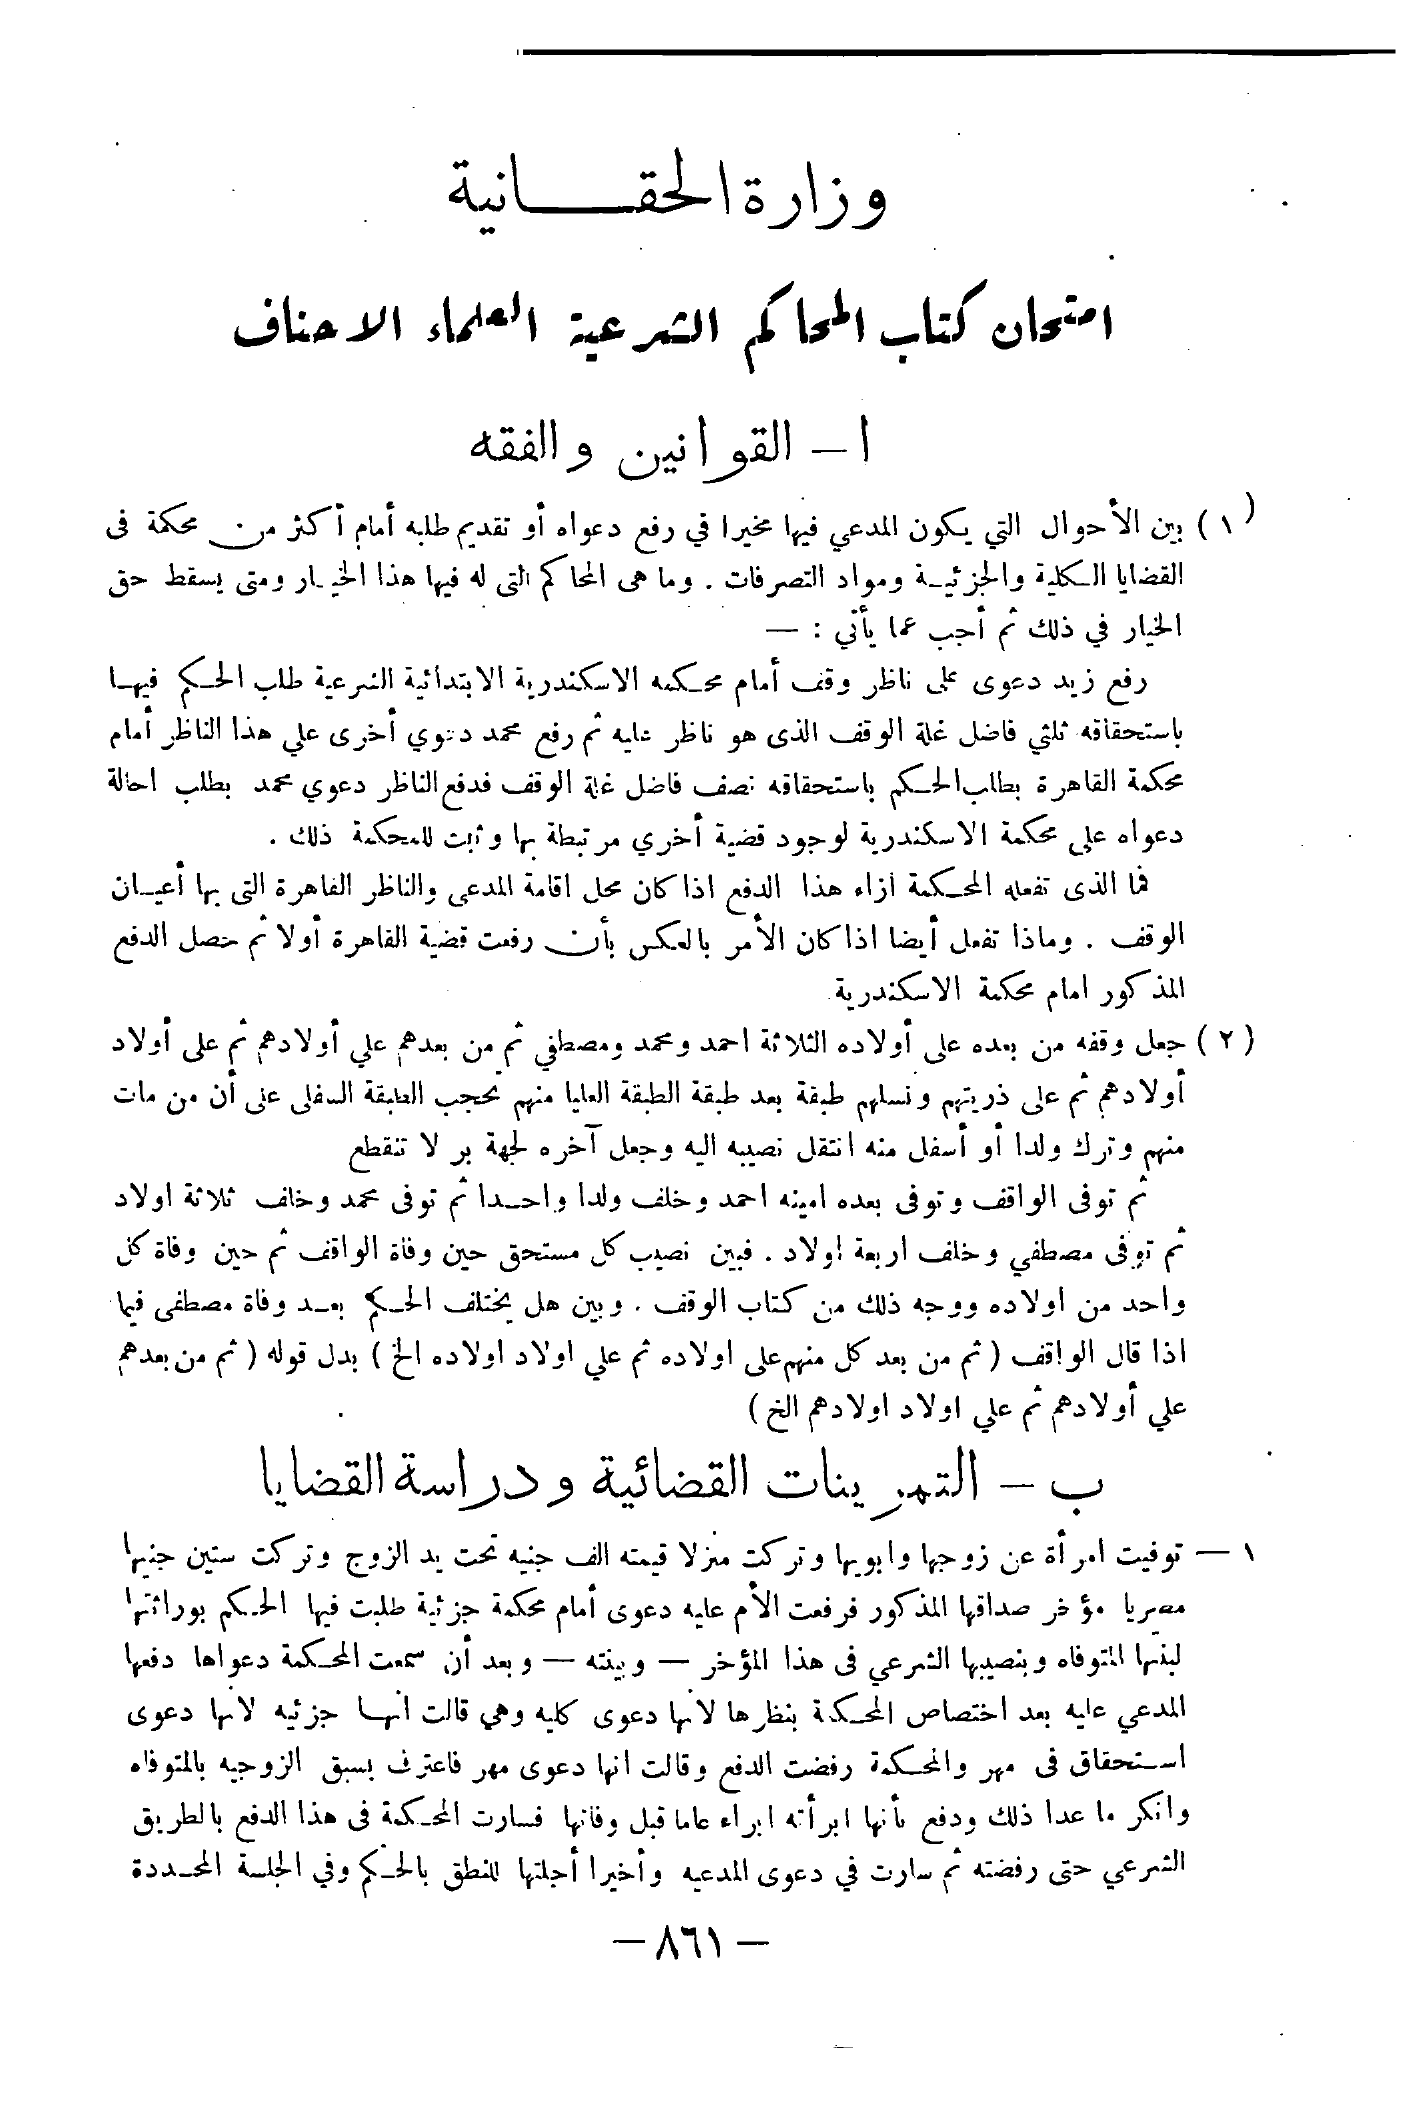 وزارة الحقانية
امتحان كتاب المحاكم الشرعية العلماء الاحناف
ا — القوانين والفقه
(١) بين الأحوال التي يكون المدعي فيها مخيرا في رفع دعواه أو تقديم طلبه أمام أكثر من محكمة فى
القضايا الكلية والجزئية ومواد التصرفات . وما هى المحاكم التى له فيها هذا الخيار ومتى يسقط حق
الخيار في ذلك ثم أجب عما يأتي : —
رفع زيد دعوى على ناظر وقف أمام محكمه الاسكندرية الابتدائية الشرعية طلب الحكم فيها
باستحقاقه ثلثي فاضل غلة الوقف الذى هو ناظر عليه ثم رفع محمد دعوي أخرى علي هذا الناظر أمام
محكمة القاهرة بطلب الحكم باستحقاقه نصف فاضل غلة الوقف فدفع الناظر دعوي محمد بطلب احالة
دعواه على محكمة الاسكندرية لوجود قضية أخري مرتبطة بها وثبت للمحكمة ذلك .
فما الذى تفعله المحكمة ازاء هذا الدفع اذا كان محل اقامة المدعى والناظر القاهرة التى بها أعيان
الوقف . وماذا تفعل أيضا اذا كان الأمر بالعكس بأن رفعت قضية القاهرة أولا ثم حصل الدفع
المذكور امام محكمة الاسكندرية
(٢) جعل وقفه من بعده على أولاده الثلاثة احمد ومحمد ومصطفي ثم من بعدهم علي أولادهم ثم على أولاد
أولادهم ثم على ذريتهم ونسلهم طبقة بعد طبقة الطبقة العليا منهم تحجب الطبقة السفلى على أن من مات
منهم وترك ولدا أو أسفل منه انتقل نصيبه اليه وجعل آخره لجهة بر لا تنقطع
ثم توفى الواقف وتوفى بعده امينه احمد وخلف ولدا واحدا ثم توفى محمد وخلف ثلاثة اولاد
ثم توفى مصطفي وخلف اربعة اولاد . فبين نصيب كل مستحق حين وفاة الواقف ثم حين وفاة كل
واحد من اولاده ووجه ذلك من كتاب الوقف . وبين هل يختلف الحكم بعد وفاة مصطفى فيما
اذا قال الواقف ( ثم من بعد كل منهم على اولاده ثم علي اولاد اولاده الخ ) بدل قوله ( ثم من بعدهم
علي أولادهم ثم علي اولاد اولادهم الخ )
ب — التمرينات القضائية ودراسة القضايا
١ — توفيت امرأة عن زوجها وابويها وتركت منزلا قيمته الف جنيه تحت يد الزوج وتركت ستين جنيها
مصريا مؤخر صداقها المذكور فرفعت الأم عليه دعوى أمام محكمة جزئية طلبت فيها الحكم بوراثتها
لبنتها المتوفاه وبنصيبها الشرعي فى هذا المؤخر — وبينته — وبعد أن سمعت المحكمة دعواها دفعها
المدعي عليه بعد اختصاص المحكمة بنظرها لأنها دعوى كليه وهي قالت انها جزئيه لانها دعوى
استحقاق فى مهر والمحكمة رفضت الدفع وقالت انها دعوى مهر فاعترف بسبق الزوجيه بالمتوفاه
وانكر ما عدا ذلك ودفع بأنها ابرأته ابراء عاما قبل وفاتها فسارت المحكمة فى هذا الدفع بالطريق
الشرعي حتى رفضته ثم سارت في دعوى المدعيه وأخيرا أجلتها للنطق بالحكم وفي الجلسة المحددة
— ٨٦١ —